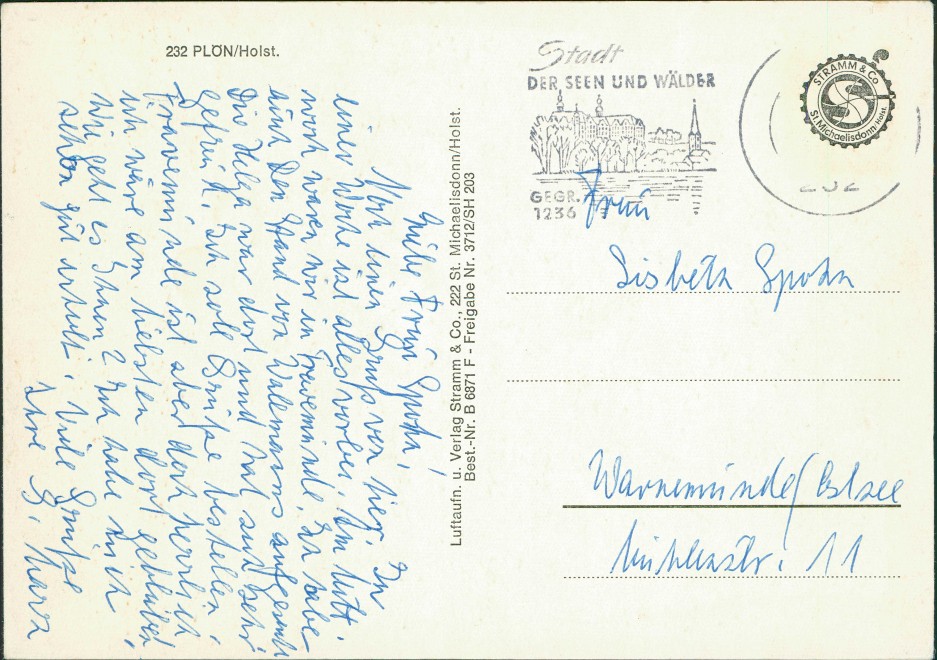 232 PLÖN/Holst.
Liebe Frau Spohn!
Nur einen Gruß von hier. In
einer Woche ist alles vorbei. Am Mitt-
woch waren wir in Travemünde. Ich habe
auch den Stand von Walemanns aufgesucht
Die Helga war dort und hat sich sehr
gefreut. Ich soll Grüße bestellen.
Travemünde ist aber doch herrlich
ich wäre am liebsten dort geblieben.
Wie geht es Ihnen? Ich habe mich
schon gut erholt. Viele Grüße
Ihre G. Harz
Luftaufn. u. Verlag Stramm & Co., 222 St. Michaelisdonn/Holst.
Best.-Nr. B 6871 F - Freigabe Nr. 3712/SH 203
Stadt
DER SEEN UND WÄLDER
GEGR.
1236
STRAMM & Co
St. Michaelisdonn/Holst.
232
Frau
Lisbeth Spohn
Warnemünde/Ostsee
Mühlenstr. 11